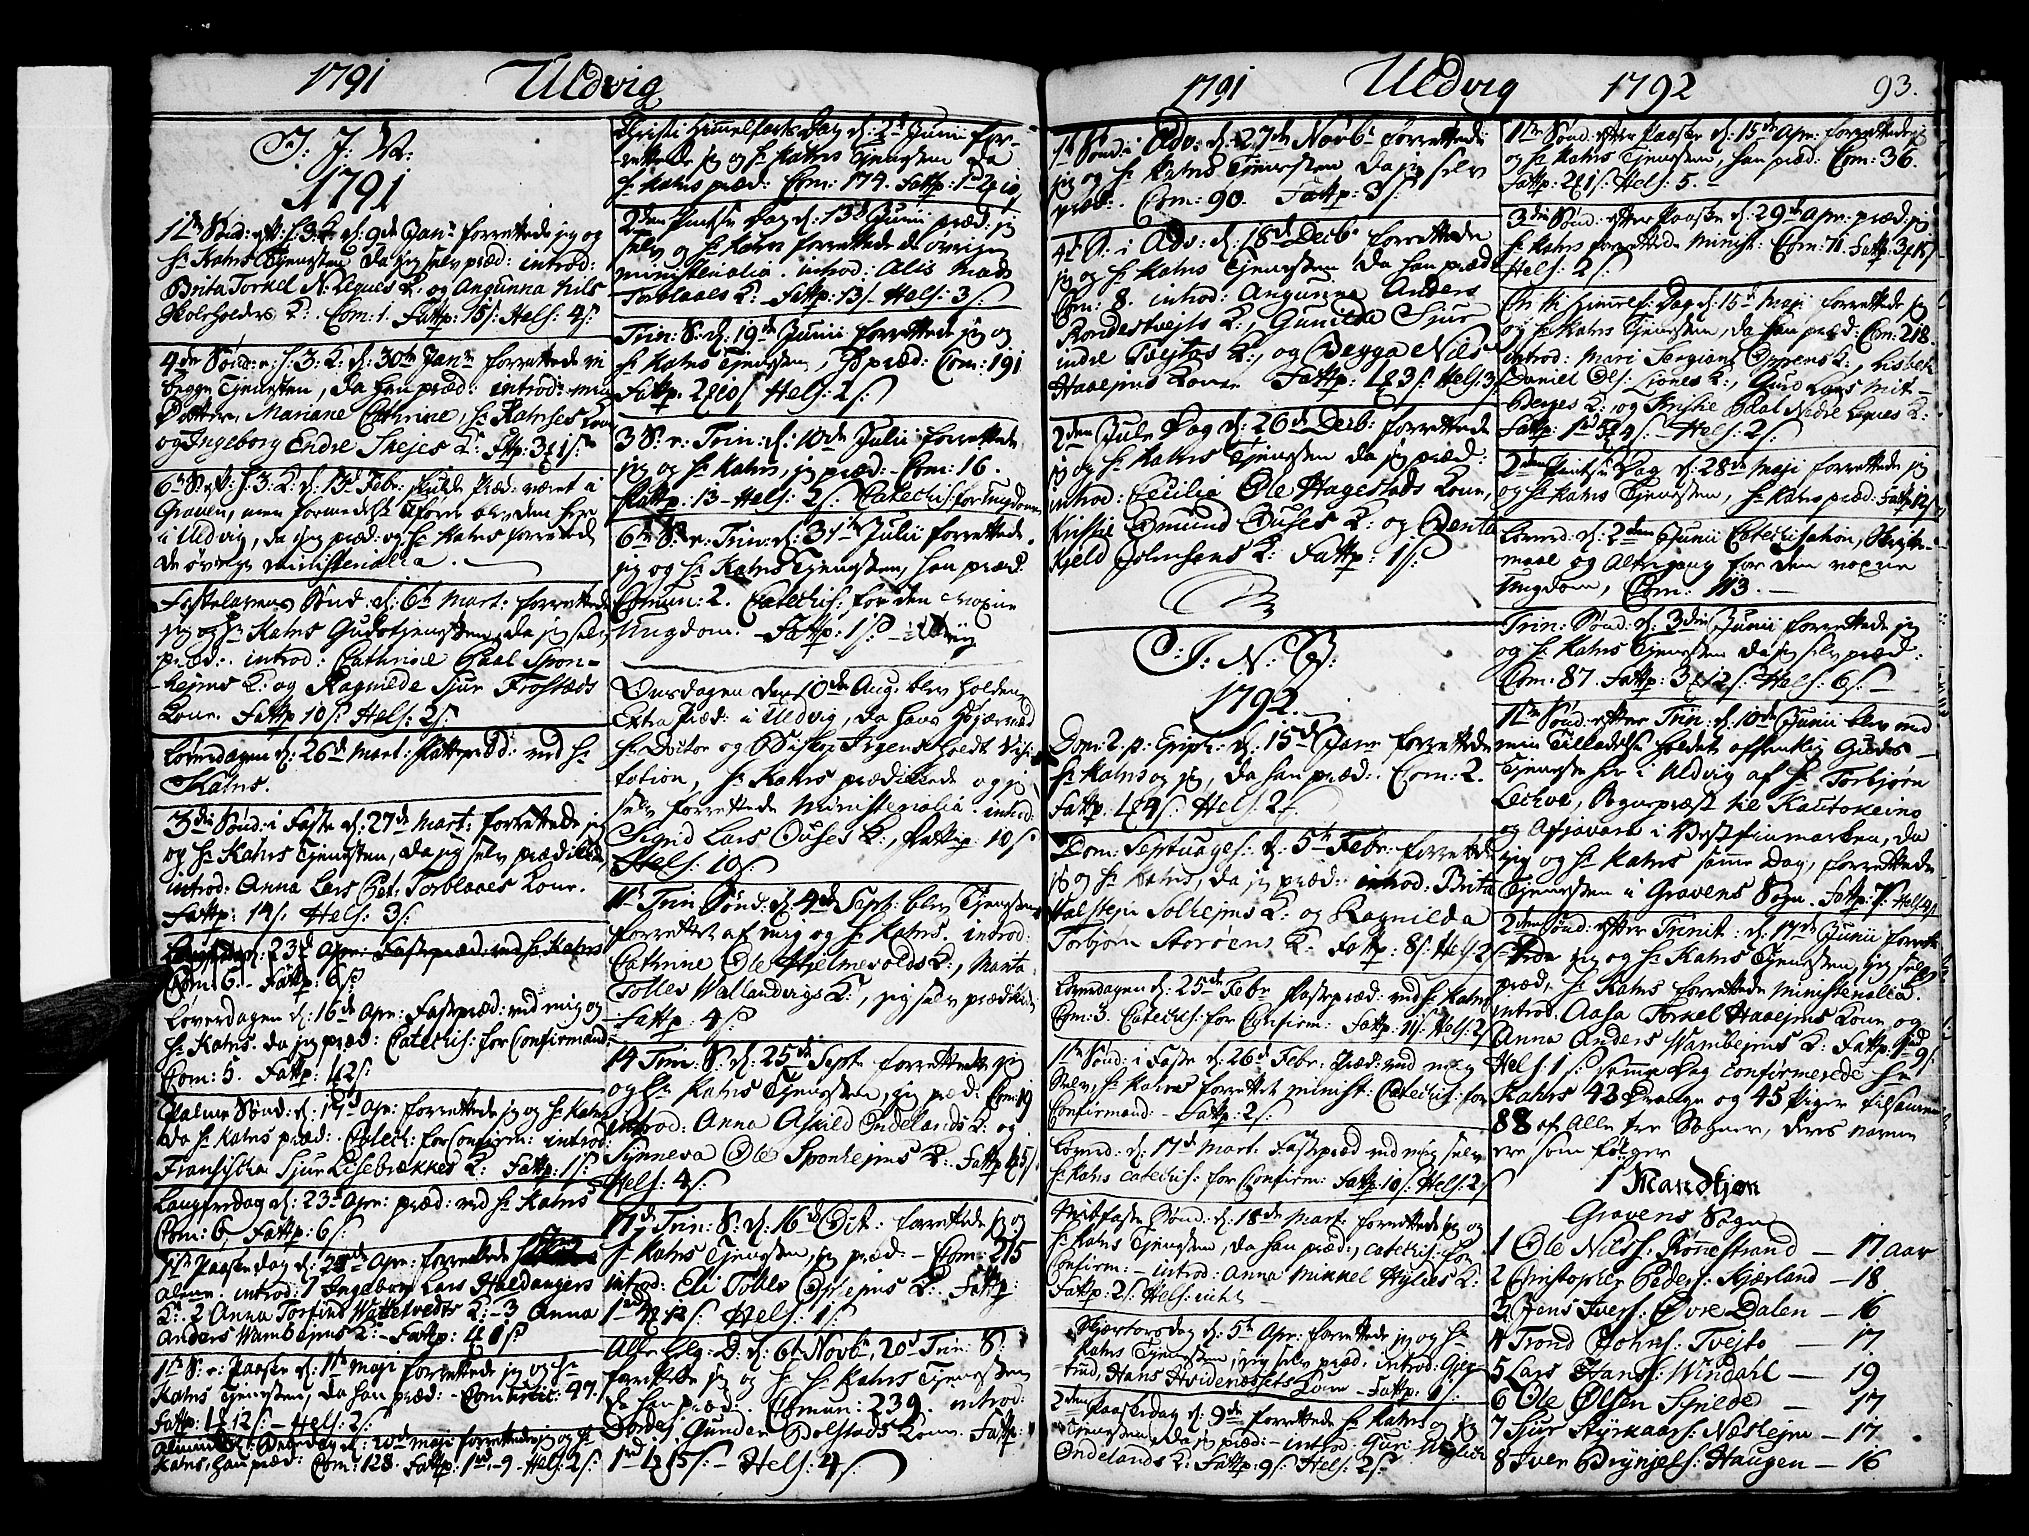 1791 Uldvig
I: J: N:
1791
1te Sønd: eft: h: 3: K: d: 9de Janr forrettede jeg og
Hr Kahrs Tjenesten da jeg selv præd: introd:
Brita Torkel N: Leqves K: og Angunna Nils
Skoleholders K: Com: 1. Fattp: 15 s: Hels: 4 s:
4de Sønd: e: h: 3: K: d: 30te Janr forrettede vi
begge Tjenesten, da han præd: introd: min
Dotter, Mariane Cathrine, Hr Kahrses Kone
og Ingeborg Endre Skejes K: Fttp: 3 1 s:
6te S: eft: h: 3: K: d: 13d Febr: skulde Præd: været i
Graven, men formedelst Aføret blev den her
i Uldvig, da jeg præd: og Hr Kahrs forrettede
de øvrige ministerialia.
Fastelavens Sønd: d: 6te Mart: forrettede
jeg og Hr Kahrs Gudstjenesten, da jeg selv
præd: introd: Cathrine Paal Spon-
hejms K: og Ragnilde Sjur Frøstæds
Kone. Fattp 10 s: Hels: 2 s:
Løverdagen d: 26d Mart: Fastepræd: ved Hr
Kahrs.
3die Sønd: i Faste d: 27de Mart: forrettede jeg
og Hr Kahrs Tjenesten, da jeg selv prædikede,
introd: Anna Lars Pet: Torblaaes Kone.
Fattp: 14 s: Hels: 3 s:
d: 23d Apr: Fastepræd: ved Hr Kahrs
Com: 6. Fattp: 6 s:
Løverdagen d: 16de Apr: Fastpræd: ved mig og
Hr Kahrs. da jeg præd: Catechis: for Confirmand:
Com: 5. Fattp: 42 s:
Palme Sønd: d: 17d Apr: forrettede jeg og Hr Kahrs
da Hr Kahrs præd: Catech: for Confirm: introd:
Fransischa Sjur Lisebrækkes K: Fattp: 1 s:
Langfredag d: 23d Apr: præd: ved Hr Kahrs
Com: 6, Fattp: 6 s:
1ste Paaskedag d: Apr: forrettede
alene. introd: 1 Ingeborg Lars Haldangers
K: 2 Anna Torfins Wættetvedts K: - 3 Anna
Anders Wambejms K: Fattp: 4 8 s:
1te S: e: Paaske d: 1te Maji forrettede jeg og Hr
Kahrs Tjenesten, da han præd: - Com: 47.
Fattp: 1 12 s: - Hels: 2 s:
d: 20de Maji forrettede jeg og Hr
Kahrs, han præd: Com: 128. Fattp: 1rd - 9 - Hels: 2 s:
Christi Himmelfarts Dag d: 2d Junii for-
rettede jeg og Hr Kahrs Tjenesten da
Hr Kahrs præd: Com: 174. Fattp: 1rd 2 10,
2den Pintse Dag d: 13d Junii præd: jeg
selv og Hr Kahrs forrettede de øvrige
ministerialia. introd: Alis Mads
Torblaaes K: - Fattp: 13 s - Hels: 3 s:
Trin: S: d: 19de Junii forrettede jeg og
Hr Kahrs Tjenesten, præd: Com: 191
Fattp: 2 10 s Hels: 2 s:
3 S: e: Trin: d: 10de Julii forrettede
jeg og Hr Kahrs, jeg præd: - Com: 16.
Fattp: 13 - Hels: 2 s: Catechis: for Ungdomm
6te S: e: Trin: d: 31te Julii forrettede
jeg og Hr Kahrs Tjenesten, han præd:
Comun: 2. Catechis: for den voxne
Ungdom. - Fattp: 1 s: -
Onsdagen den 10de Aug: blev holden
Extra Præd: i Uldvig, da hans Højærværd
Hr Doctor og Biskop Irgens holdt Visi-
tation, Hr Kahrs prædikede og jeg
selv forrettede Ministerialia. introd:
Sigrid Lars Ouses K:, Fattp: 10 s
Hels: 10 s
11te Trin. Sønd: d: 4de Sept: blev Tjenesten
forrettet af mig og Hr Kahrs. introd:
Cathrine Ole Hjelmevolds K:, Marta
Tollev Wallandvigs K:, jeg selv prædikede
Fattp: 4 s:
14 Trin: S: d: 25de Sept forrettede jeg
og Hr Kahrs Tjenesten, jeg præd: Com: 19
introd: Anna Askild Ondelands K: og
Synneva Ole Sponhejms K: Fattp 4 5 s
Hels: 4 s:
17de Trin: S: d: 16de Oct: forrettede jeg og
Hr Kahrs Tjenesten, jeg præd: - Com: 215
introd: Eli Tollev Ophejms K: Fattp:
1rd 12 s: Hels: 1 s:
Alle Helg: D: d: 6te Novbr, 20d Trin: S:
forrettede jeg og Hr Kahrs Tjenesten
da han præd: Comun: 239. introd:
Dordej Gunder Dolstads Kone. Fattp:
1rd 4 15 s: - Hels: 4 s:
1791 Uldvig 1792 93.
1te Sønd: i Adv: d: 27de Novbr forrettede
jeg og Hr Kahrs Tjenesten da jeg selv
præd: Com: 90. Fattp: 8 s:
4de S. i Adv: d: 18de Decbr forrettede
jeg og Hr Kahrs Tjenesten da han præd:
Com: 8. introd: Angunna Anders
Rondestvejts K:, Gunilda Sjur
indre Tvejtos K:, og Begga Nils
Haaejms Kone Fattp: 1 3 s: Hels: 3 s
2den Jule Dag d: 26de Decb: forrettede
jeg og Hr Kahrs Tjenesten da jeg præd:
introd: Cecilia Ole Hagestads Kone,
Kristie Omund Ouses K: og Benta
Kjeld Johnsens K: Fattp: 1 s:
I: N: J:
1792.
Dom: 2. p: Epiph: d: 15de Janr forrettede
Hr Kahrs og jeg, da han præd: Com: 2.
Fattp: 1 4 s: Hels: 2 s.
Dom: Septuages: d: 5te Febr: forrettede
jeg og Hr Kahrs, da jeg præd: introd: Brita
Halstejn Solhejms K: og Ragnilda
Torbjørn Storøens K: Fattp: 8 s: Hels: 2 s
Løverdagen d: 25de Febr Fastepræd: ved Hr Kahrs
Com: 3. Catechis: for Confirm: Fattp: 11 s: Hels: 2 s
1te Sønd: i Faste d: 26d Febr: Præd: ved mig
selv, Hr Kahrs forrettet minist: Catechis: for
Confirmand: - Fattp: 2 s:
Løverd: d: 17d Mart: Fastepræd ved mig selv
Hr Kahrs catechis: for Confirm: Fattp: 10 s: Hels: 2 s
Midfaste Sønd: d: 18de Mart: forrettede jeg og
Hr Kahrs Tjenesten, da han præd:, catechis: for
Confirm: - introd: Anna Mikkel Hylles K:
Fattp: 2 s: Hels: nihil
Skjærtorsdag d: 5te Apr: forrettede jeg og Hr
Kahrs Tjenesten, jeg selv præd: introd: Ger-
trud, Hans Hvidenæssets Kone - Fattp: 1 s:
2den Paaskedag d: 9de forrettede Hr Kahrs og jeg
Tjenesten, da jeg præd: - introd: Guri
Ondelands K: Fattp: 9 s: Hels: 2 s:
1te Sønd: efter Paaske d: 15de Apr: forrettede jeg
og Hr Kahrs Tjenesten, han præd: Com: 36.
Fattp: 2 1 s: Hels: 5.
3die Sønd: efter Paaske d: 29de Apr: præd: jeg
Hr Kahrs forrettede minist: Com: 71. Fattp: 3 15
Hels: 2 s:
Chr: Himmelf: Dag d: 15de Maji forrettede jeg
og Hr Kahrs Tjenesten, da han præd: Com: 218.
introd: Mari Torgiens K:, Lisbeth
Daniel Ols: Liones K:, Gurid Lars Mit-
Berges K: og Kristie Paal Nedre Leqves K:
Fattp: 1rd 5 4 s: - Hels: 2 s:
2den Pintse Dag d: 28de Maji forrettede jeg
og Hr Kahrs Tjenesten, Hr Kahrs præd: Fattp 12 s
Løverd: d: 2den Junii Catechisation, Skrifte-
maal og Altergang for den voxne
Ungdom, Com: 113.
Trin: Sønd: d: 3die Junii forrettede jeg
og Hr Kahrs Tjenesten da jeg selv præd:
Com: 87 Fattp: 3 12 s: Hels: 6 s:
1te Sønd: efter Trin: d: 10de Junii blev med
min Tilladelse holdet offentlig Guds-
Tjeneste her i Uldvig af Hr Torbjørn
Lechve, Sognepræst til Kautokeino
og Afjovara i Vestfinmarken, da
jeg og Hr Kahrs samme Dag, forrettede
Tjenesten i Gravens Sogn. Fattp: 7 s: Hels: 4 s
2den Sønd: efter Trinit: d: 17de Junii forret-
tede jeg og Hr Kahrs Tjenesten, jeg selv
præd, Hr Kahrs forrettede ministerialia.
introd: Aasa Torkel Haaejms Kone, og
Anna Anders Wambejms K: Fattp: 1rd 9 s:
Hels: 1 s: samme Dag confirmerede Hr
Kahrs 43 Drenge og 45 Piger tilsammen
88 af Alle tre Sogner, deres navne
ere som følger
1 Mandkjøn
Gravens Sogn
1 Ole Nilss: Rønnestrand - 17 aar
2 Christopher Peders: Kjærland - 18
3 Jens Ivers: Øvre Dalen - 16
4 Trond Johns: Tvejto - 17
5 Lars Hans: Windahl - 19
6 Ole Olsen Spilde - 17
7 Sjur Styrkaars: Næshejm - 17
8 Iver Brynjels: Haugen - 16